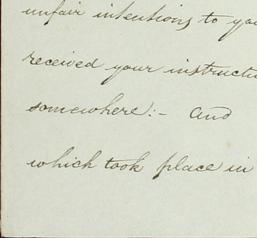 unfair intentions to you
received your instructi
somewhere:- And
which took place in